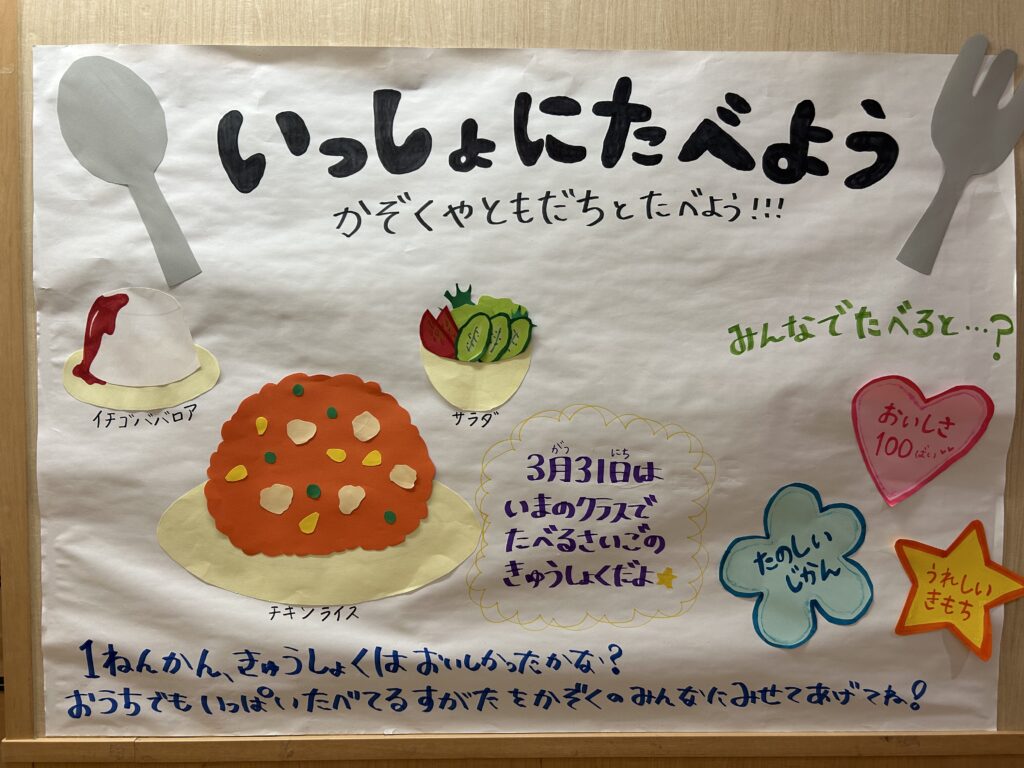 いっしょにたべよう
かぞくやともだちとたべよう!!!
みんなでたべると…?
イチゴババロア
サラダ
おいしさ
100ばい
3月31日は
がつ にち
いまのクラスで
たべるさいごの
きゅうしょくだよ
たのしい
じかん
うれしい
きもち
チキンライス
1ねんかん、きゅうしょくはおいしかったかな?
おうちでもいっぱいたべてるすがたをかぞくのみんなにみせてあげてね!